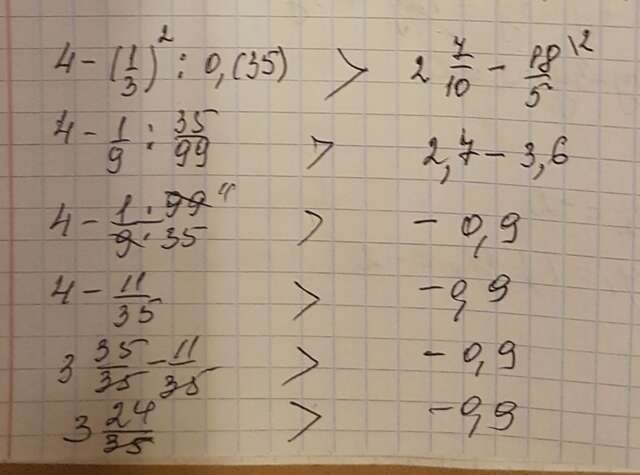 4 - (1/3)² : 0,(35) > 2 7/10 - 18/5 \2
4 - 1/9 : 35/99 > 2,7 - 3,6
4 - (1 · 99 11)/(9 · 35) > - 0,9
4 - 11/35 > - 0,9
3 35/35 - 11/35 > - 0,9
3 24/35 > - 0,9